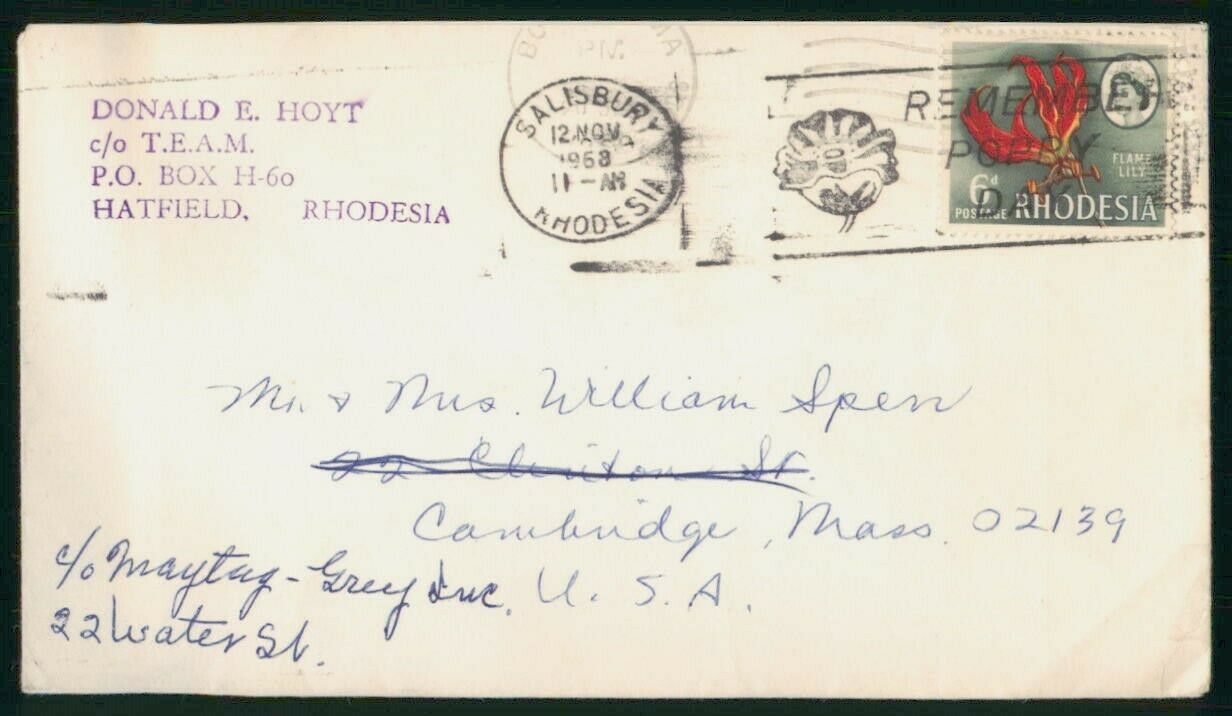 DONALD E. HOYT
c/o T.E.A.M.
P.O. BOX H-60
HATFIELD, RHODESIA
SALISBURY
12 NOV
1968
11 - AM
RHODESIA
REMEMBER
POPPY
DAY
FLAME
LILY
6d
POSTAGE RHODESIA
Mr. & Mrs. William Sperr
22 Clinton St.
Cambridge, Mass. 02139
U. S. A.
c/o Maytag-Grey Inc.
22 Water St.